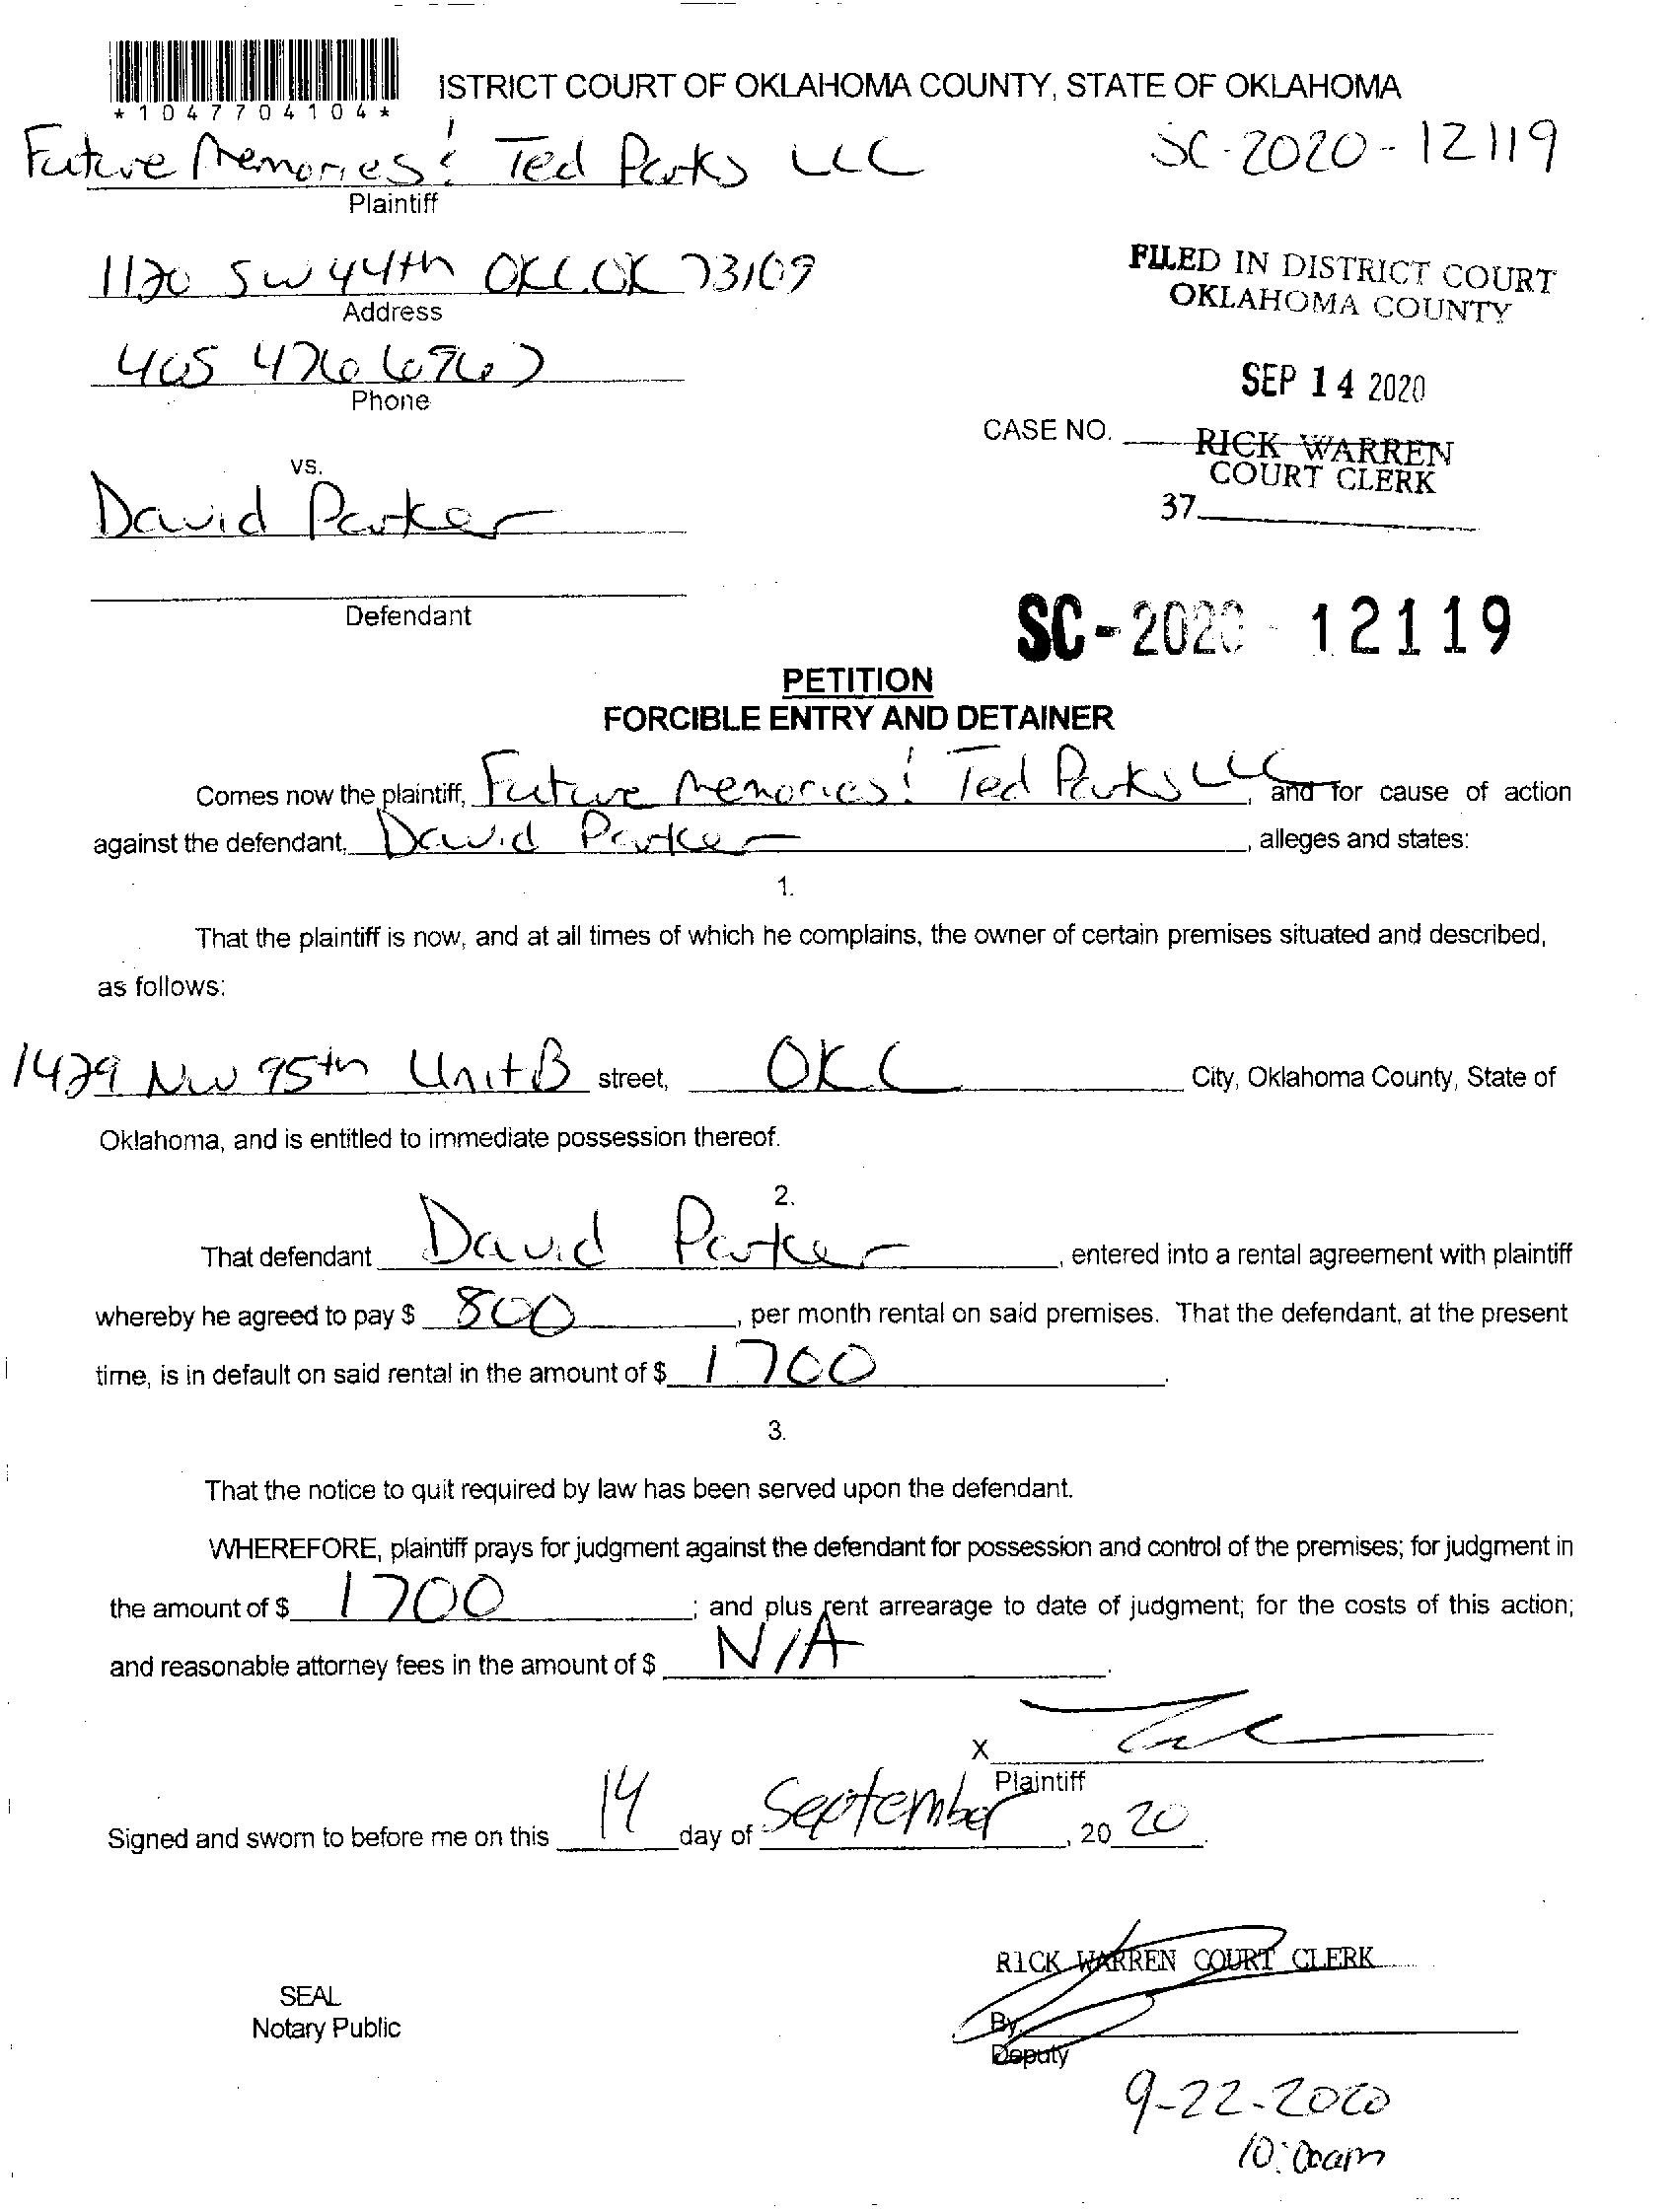 ISTRICT COURT OF OKLAHOMA COUNTY, STATE OF OKLAHOMA
*1047704104*
Future Memories & Ted Parks LLC
SC-2020-12119
Plaintiff
1120 SW 44th OKC.OK 73109
Address
FILED IN DISTRICT COURT
OKLAHOMA COUNTY
405
Phone
SEP 14 2020
CASE NO.
RICK WARREN
COURT CLERK
37
vs.
David Parker
Defendant
SC-2020-12119
PETITION
FORCIBLE ENTRY AND DETAINER
Comes now the plaintiff, Future Memories & Ted Parks LLC, and for cause of action
against the defendant, David Parker, alleges and states:
1.
That the plaintiff is now, and at all times of which he complains, the owner of certain premises situated and described,
as follows:
1429 NW 95th Unit B street, OKC City, Oklahoma County, State of
Oklahoma, and is entitled to immediate possession thereof.
2.
That defendant David Parker, entered into a rental agreement with plaintiff
whereby he agreed to pay $ 800, per month rental on said premises. That the defendant, at the present
time, is in default on said rental in the amount of $ 1700.
3.
That the notice to quit required by law has been served upon the defendant.
WHEREFORE, plaintiff prays for judgment against the defendant for possession and control of the premises; for judgment in
the amount of $ 1700; and plus rent arrearage to date of judgment; for the costs of this action;
and reasonable attorney fees in the amount of $ N/A.
X
Plaintiff
Signed and sworn to before me on this 14 day of September, 20 20.
RICK WARREN COURT CLERK
SEAL
Notary Public
By,
Deputy
9-22-2020
10:00am